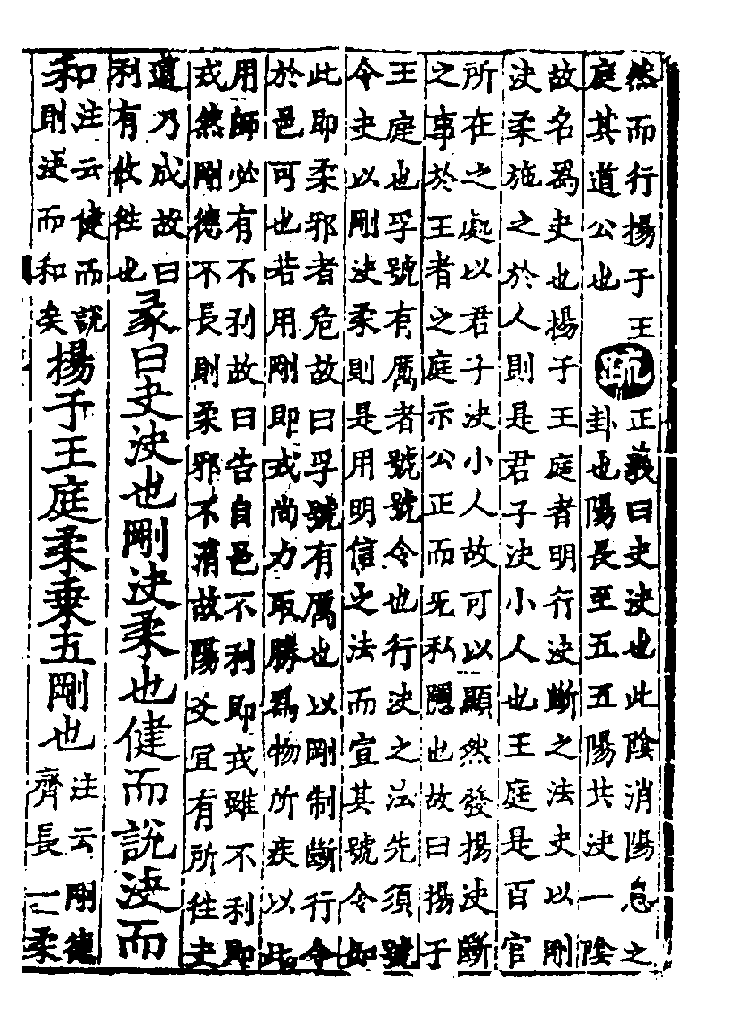 然而行揚于王
庭其道公也
疏
正義曰夬決也此陰消陽息之
卦也陽長至五五陽共決一陰
故名爲夬也揚于王庭者明行決斷之法夬以剛
決柔施之於人則是君子決小人也王庭是百官
所在之處以君子決小人故可以顯然發揚決斷
之事於王者之庭示公正而无私隱也故曰揚于
王庭也孚號有厲者號號令也行決之法先須號
令夬以剛決柔則是用明信之法而宣其號令如
此即柔邪者危故曰孚號有厲也以剛制斷行令
於邑可也若用剛即戎尚力取勝爲物所疾以此
用師必有不利故曰告自邑不利即戎雖不利即
戎然剛德不長則柔邪不消故陽爻宜有所往夬
道乃成故曰
利有攸往也
彖曰夬決也剛決柔也健而說決而
和
注云健而說
則決而和矣
揚于王庭柔乘五剛也
注云剛德
齊長一柔